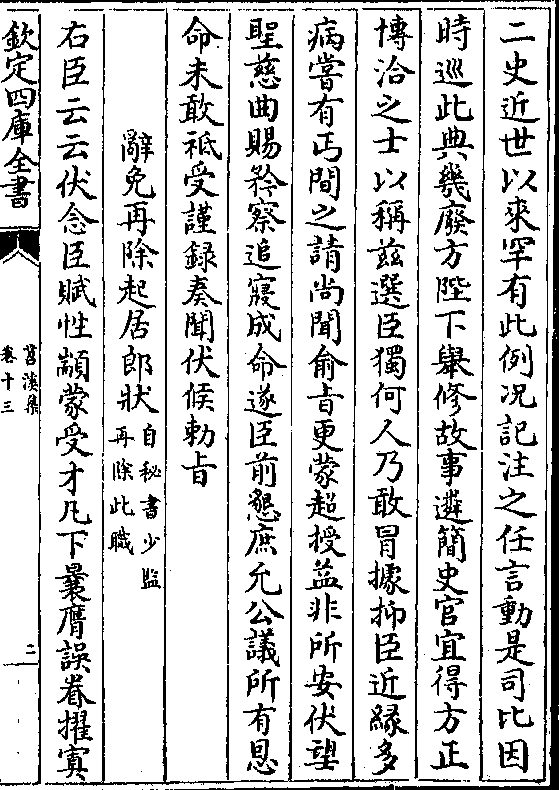 二史近世以來罕有此例况記注之任言動是司比因
時巡此典幾廢方陛下舉修故事遴簡史官宜得方正
博洽之士以稱兹選臣獨何人乃敢冒據抑臣近緣多
病嘗有丐閒之請尚聞俞㫖更蒙超授益非所安伏望
聖慈曲賜矜察追寢成命遂臣前懇庶允公議所有恩
命未敢祗受謹録奏聞伏候勅㫖
辭免再除起居郎狀自秘書少監
再除此職
右臣云云伏念臣賦性顓蒙受才凡下曩膺誤眷擢寘
欽定四庫全書
苕溪集
卷十三
二